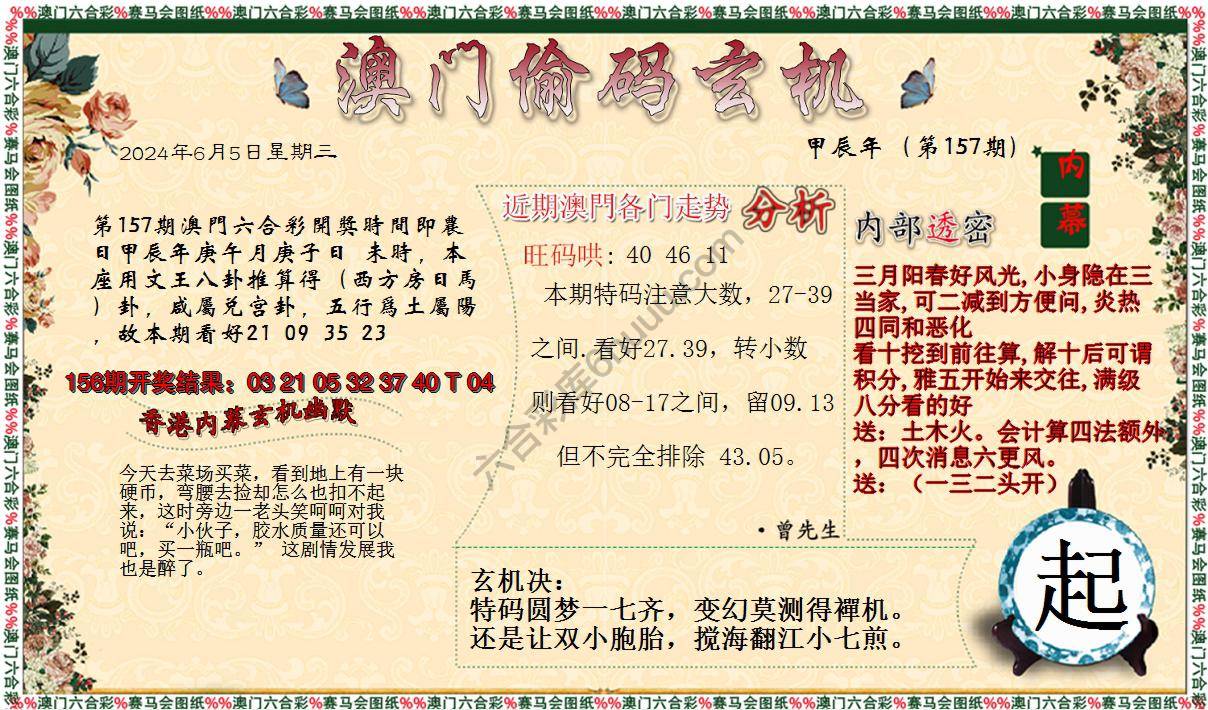 %%澳门六合彩%赛马会图纸%%澳门六合彩%赛马会图纸%%澳门六合彩%赛马会图纸%%澳门六合彩%赛马会图纸%%澳门六合彩%赛马会图纸%%澳门六合彩%赛马会图纸%%
澳门偷码玄机
2024年6月5日星期三
甲辰年（第157期）
第157期澳門六合彩開獎時間即農
日甲辰年庚午月庚子日 未時，本
座用文王八卦推算得（西方房日馬
）卦，咸屬兑宫卦，五行爲土屬陽
，故本期看好21 09 35 23
156期开奖结果：03 21 05 32 37 40 T 04
香港内幕玄机幽默
今天去菜场买菜，看到地上有一块
硬币，弯腰去捡却怎么也扣不起
来，这时旁边一老头笑呵呵对我
说：“小伙子，胶水质量还可以
吧，买一瓶吧。” 这剧情发展我
也是醉了。
近期澳門各门走势 分析
旺码哄: 40 46 11
本期特码注意大数，27-39
之间.看好27.39，转小数
则看好08-17之间，留09.13
但不完全排除 43.05。
·曾先生
内部透密
内幕
三月阳春好风光,小身隐在三
当家,可二减到方便问,炎热
四同和恶化
看十挖到前往算,解十后可谓
积分,雅五开始来交往,满级
八分看的好
送：土木火。会计算四法额外
，四次消息六更风。
送：（一三二头开）
玄机决：
特码圆梦一七齐，变幻莫测得禪机。
还是让双小胞胎，搅海翻江小七煎。
起
%%澳门六合彩%赛马会图纸%%澳门六合彩%赛马会图纸%%澳门六合彩%赛马会图纸%%澳门六合彩%赛马会图纸%%澳门六合彩%赛马会图纸%%澳门六合彩%赛马会图纸%%